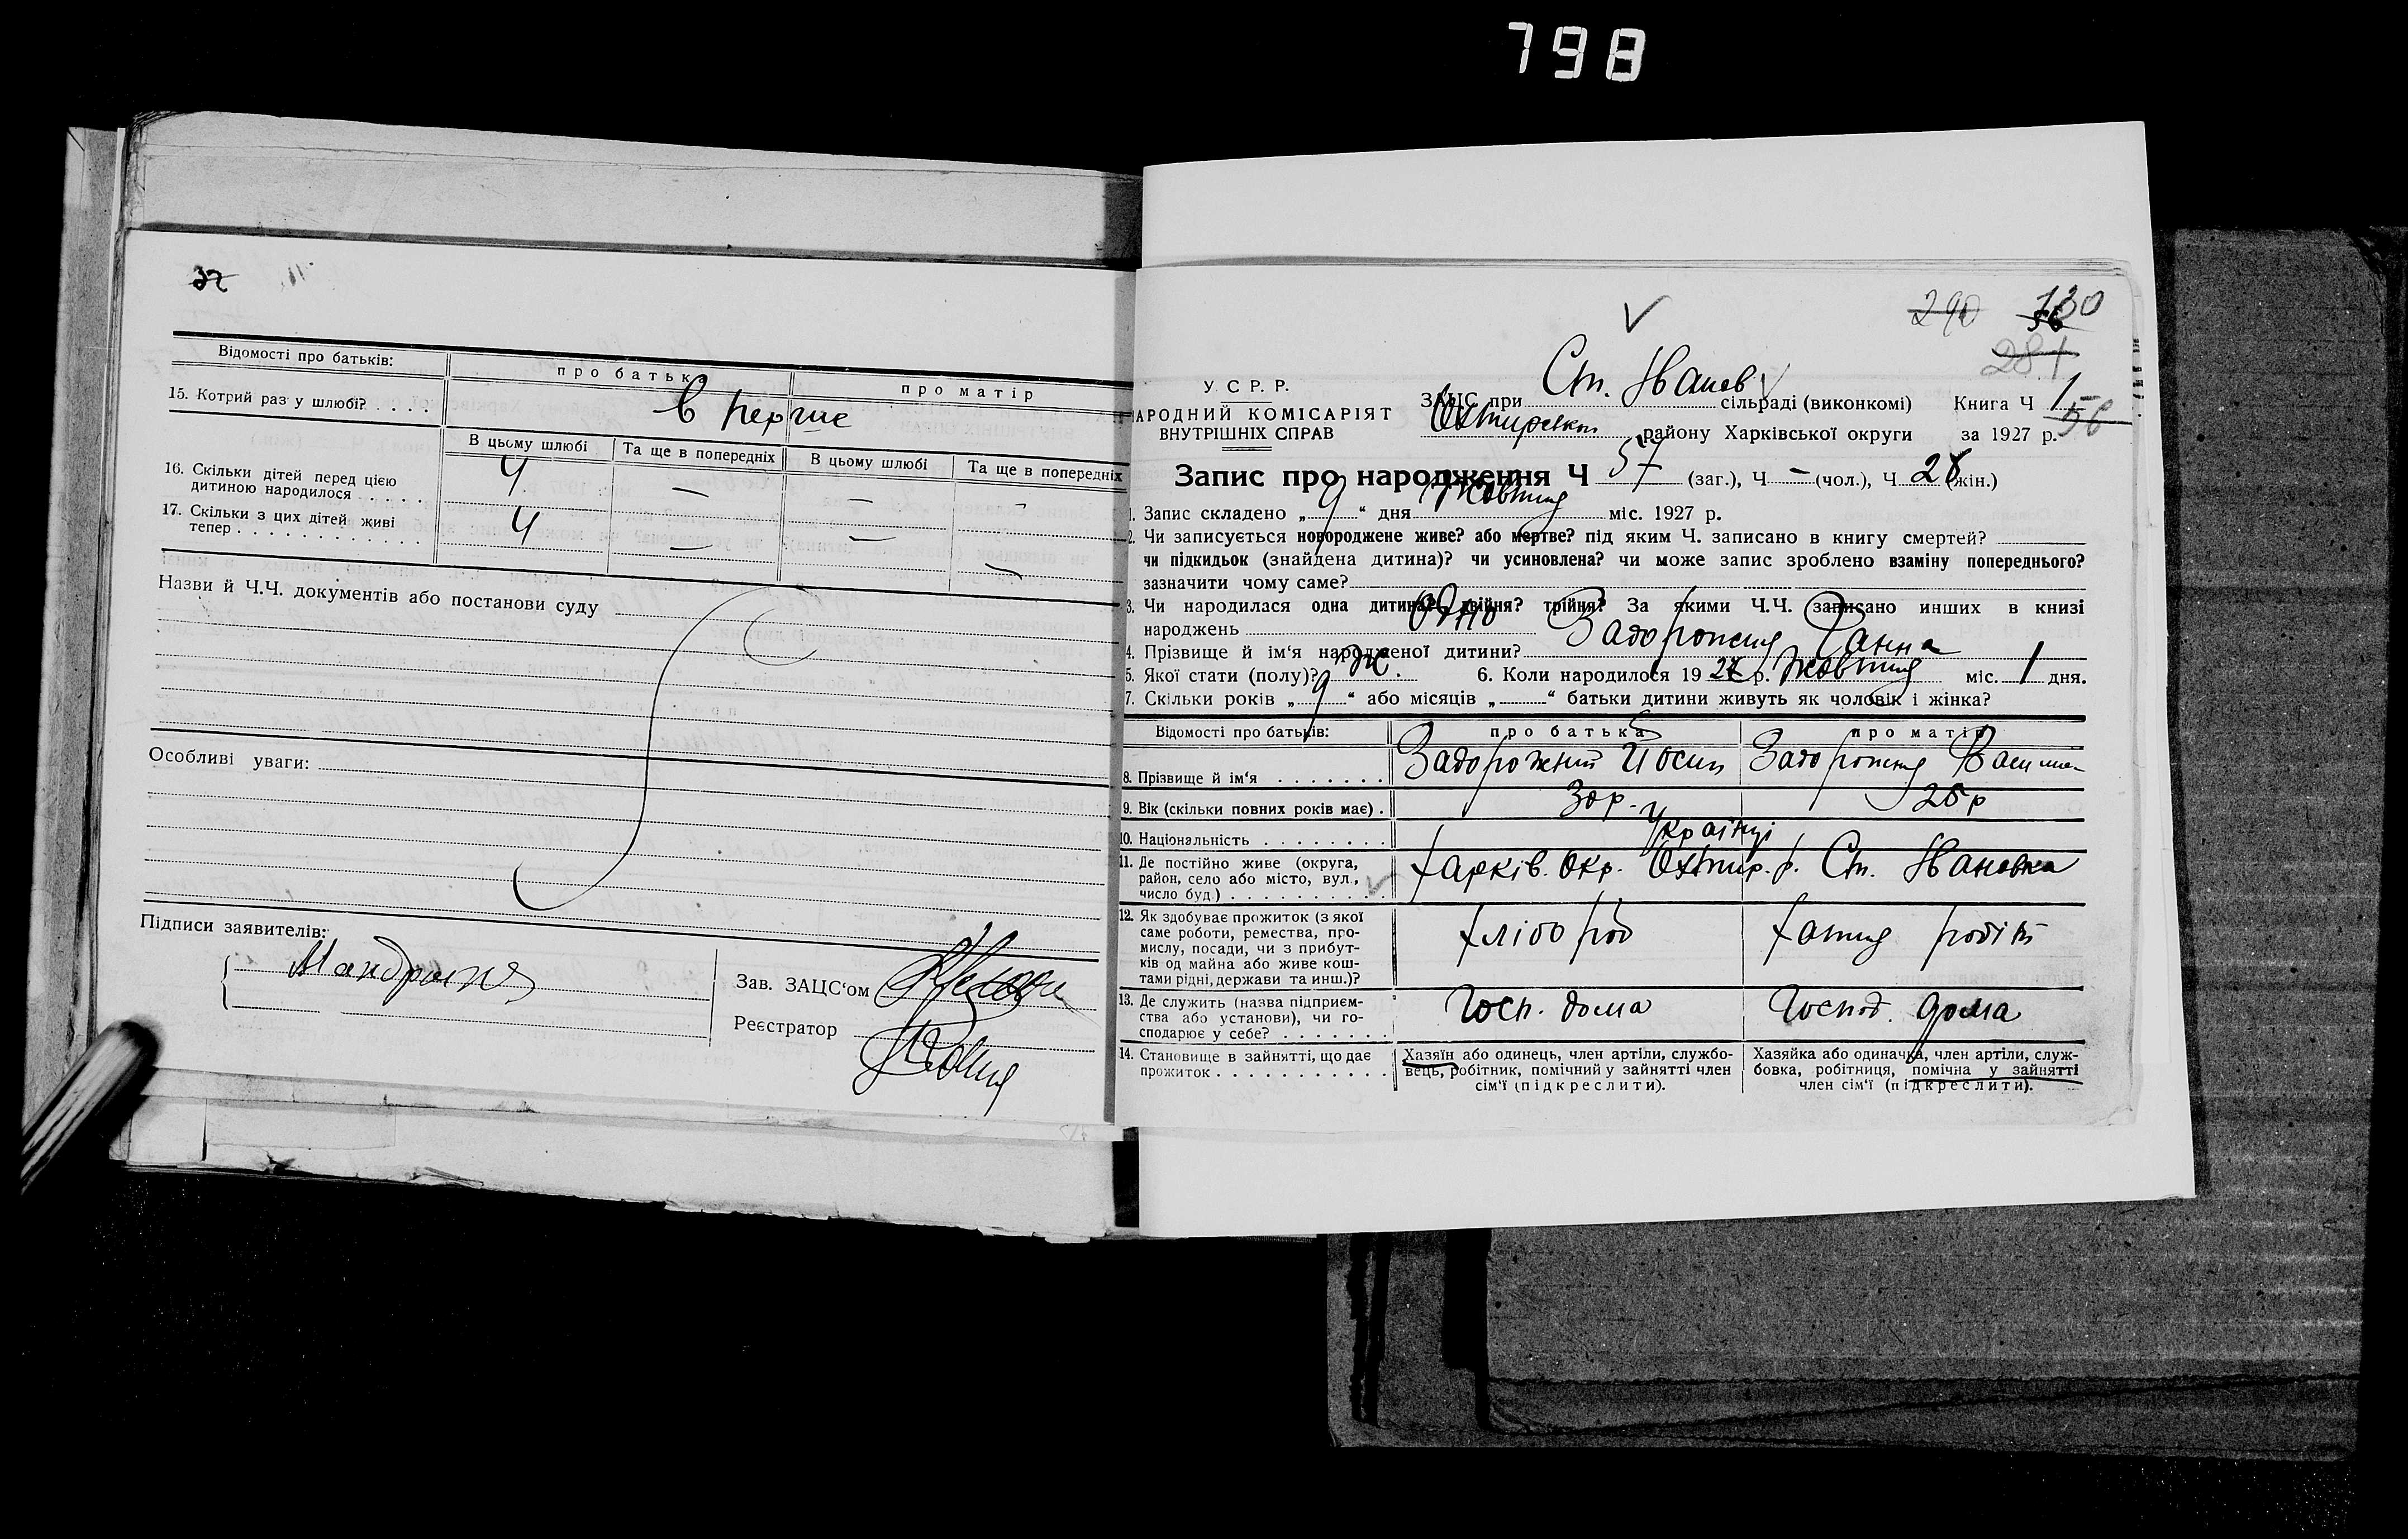 798
32
Відомості про батьків:
про батька
про матір
15. Котрий раз у шлюбі? . . . .
в перше
В цьому шлюбі
Та ще в попередніх
В цьому шлюбі
Та ще в попередніх
16. Скільки дітей перед цією
дитиною народилося . . . .
4 — — -
17. Скільки з цих дітей живі
тепер . . . . . . . . . . . .
4 — — —
Назви й Ч.Ч. документів або постанови суду
Особливі уваги:
Підписи заявителів:
Зав. ЗАЦС'ом
Реєстратор
290 130
56
281
У. С. Р. Р.
АРОДНИЙ КОМІСАРІЯТ
ВНУТРІШНІХ СПРАВ
ЗАЦС при Ст. Іванов сільраді (виконкомі) Книга Ч 1
Охтирськом району Харківської округи за 1927 р. 56
Запис про народження Ч 57 (заг.), Ч — (чол.), Ч 28 (жін.)
1. Запис складено „ 9 “ дня Жовтня міс. 1927 р.
2. Чи записується новороджене живе? або мертве? під яким Ч. записано в книгу смертей?
чи підкидьок (знайдена дитина)? чи усиновлена? чи може запис зроблено взаміну попереднього?
зазначити чому саме?
3. Чи народилася одна дитина? двійня? трійня? За якими Ч.Ч. записано инших в книзі
народжень одно
4. Прізвище й ім'я народженої дитини? Задорожня Ганна
5. Якої стати (полу)? ж. 6. Коли народилося 19 27 р. Жовтня міс. 1 дня.
7. Скільки років „ 9 “ або місяців „ “ батьки дитини живуть як чоловік і жінка?
Відомості про батьків:
про батька
про матір
8. Прізвище й ім'я . . . . . . .
Задорожний Йосип
Задорожня
9. Вік (скільки повних років має) .
30р.
25р
10. Національність . . . . . . . .
Українці
11. Де постійно живе (округа,
район, село або місто, вул.,
число буд.) . . . . . . . . . .
Харків. Окр. Охтир. р. Ст. Івановка
12. Як здобуває прожиток (з якої
саме роботи, ремества, про-
мислу, посади, чи з прибут-
ків од майна або живе кош-
тами рідні, держави та инш.)?
Хлібороб
Хатня робіт
13. Де служить (назва підприєм-
ства або установи), чи го-
сподарює у себе? . . . . . . .
Госп. дома
Господ. дома
14. Становище в зайнятті, що дає
прожиток . . . . . . . . . . .
Хазяїн або одинець, член артіли, службо-
вець, робітник, помічний у зайнятті член
сім'ї (підкреслити).
Хазяйка або одиначка, член артіли, служ-
бовка, робітниця, помічна у зайнятті
член сім'ї (підкреслити).